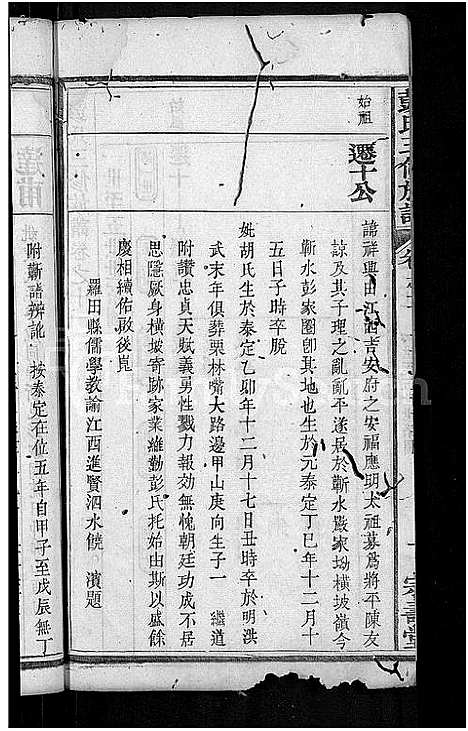 彭氏三修族譜
始祖
遷十公
諱祥興由江西吉安府之安福應明太祖募爲將平陳友
諒及其子理之亂亂平遂居於蘄水嚴家坳橫坡嶺今
蘄水彭家圈卽其地也生於元泰定丁巳年十二月十
五日子時卒脫
妣胡氏生於泰定乙卯年十二月十七日丑時卒於明洪
武末年俱葬栗林嘴大路邊甲山庚向生子一 繼道
附讚忠貞天賦義勇性戮力報効無愧朝廷功成不居
思隱厥身橫坡寄跡家業維勤彭氏托始由斯以盛餘
慶相續佑啟後崑
羅田縣儒學教諭江西進賢泗水饒 濱題
宗壽堂
達甫
妣
附蘄譜辨訛 按泰定在位五年自甲子至戊辰無丁